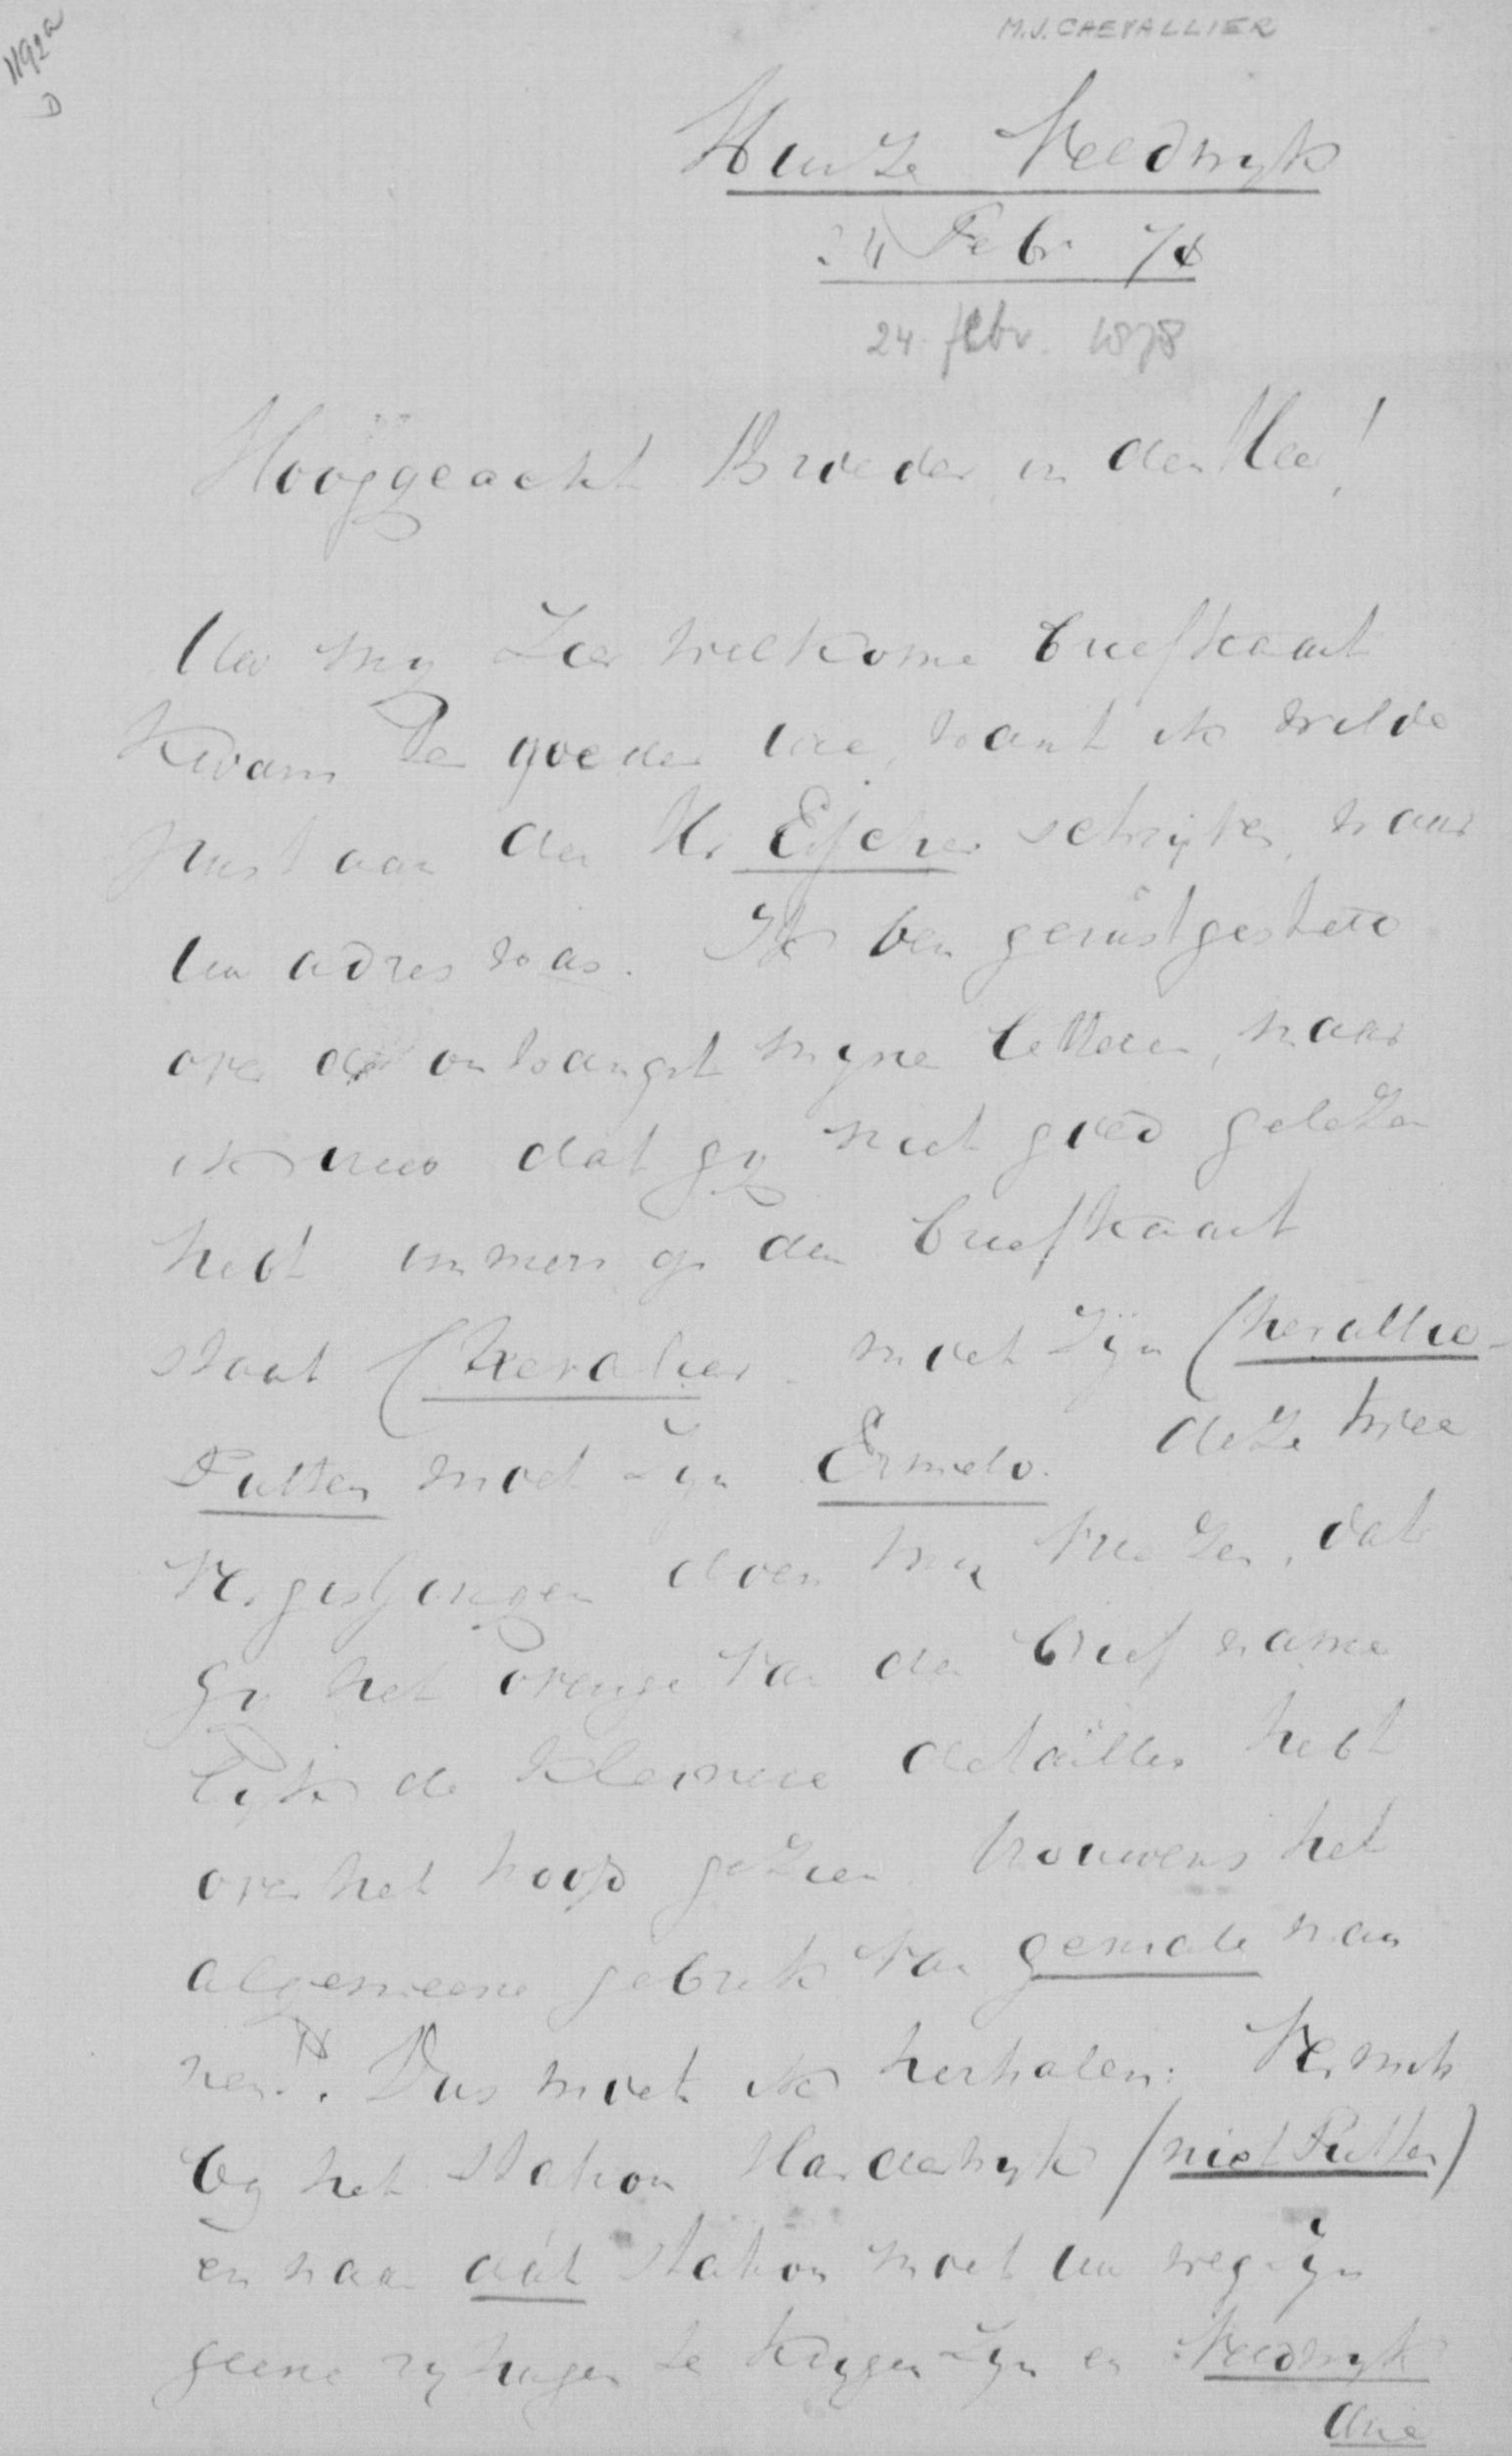 1192a
D
M.J. CHEVALLIER
Huize Veldwyk
24 Febr 78
24 febr. 1878
Hooggeacht Broeder in den Heer!
Uw my zeer welkome briefkaart
kwam te goeder ure, want ik wilde
juist aan den Hr Esscher schryven, waar
uw adres was. Ik ben gerustgesteld
over de ontvangst myner letteren, maar
ik vrees dat gy niet goed gelezen
hebt immers op den briefkaart
staat Chevalier moet zyn Chevallier
Putten moet zyn Ermelo. deze twee
vergissingen doen my vreezen, dat
gy het overige van den brief name
lyk de kleinere detailles hebt
over het hoofd gezien trouwens het
algemeene gebrek van geniale man
nen. Dus moet ik herhalen:
by het station Harderwyk (niet Putten)
en naar dát station moet uw weg zyn
geene rytuigen te krygen zyn en Veldwyk
drie